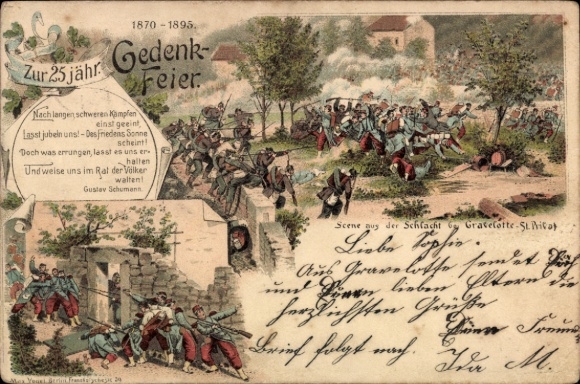 1870 - 1895.
Zur 25 jähr.
Gedenk-
Feier.
Nach langen, schweren Kämpfen
einst geeint,
Lasst jubeln uns! - Des Friedens Sonne
scheint!
Doch was errungen, lasst es uns er-
halten
Und weise uns im Rat der Völker
walten!
Gustav Schumann.
Scene aus der Schlacht b. Gravelotte-St. Privat
Liebe Sophie.
Aus Gravelotte sendet Dir
und Deinen lieben Eltern die
herzlichsten Grüße
Deine
Brief folgt nach. Ida M.
Max Vogel, Berlin,